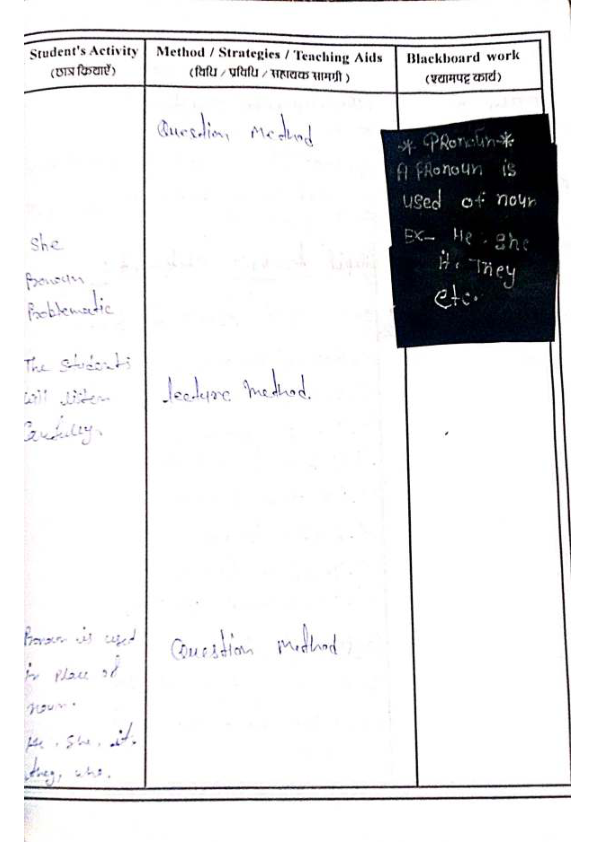 Student's Activity
(छात्र क्रियाएँ)
Method / Strategies / Teaching Aids
(विधि / प्रविधि / सहायक सामग्री)
Blackboard work
(श्यामपट्ट कार्य)
Question Method
* PRonoun *
A PRonoun is
used of noun
EX- He. She
It. They
etc.
She
Pronoun
Problematic
The Students
will listen
Carefully.
lecture method.
Pronoun is used
in place of
noun.
He. She. it.
they, who.
Question method